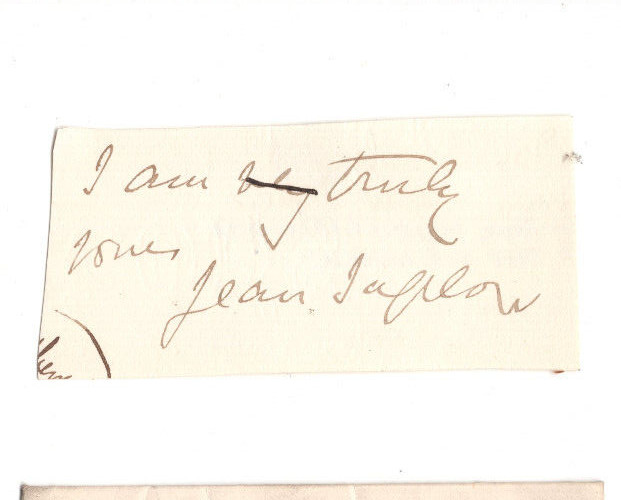 I am very truly
yours
Jean Ingelow